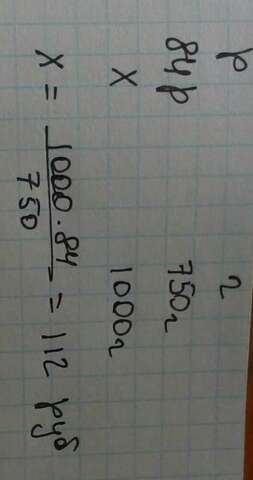 р г
84р 750г
х 1000г
х = 1000·84 / 750 = 112 руб